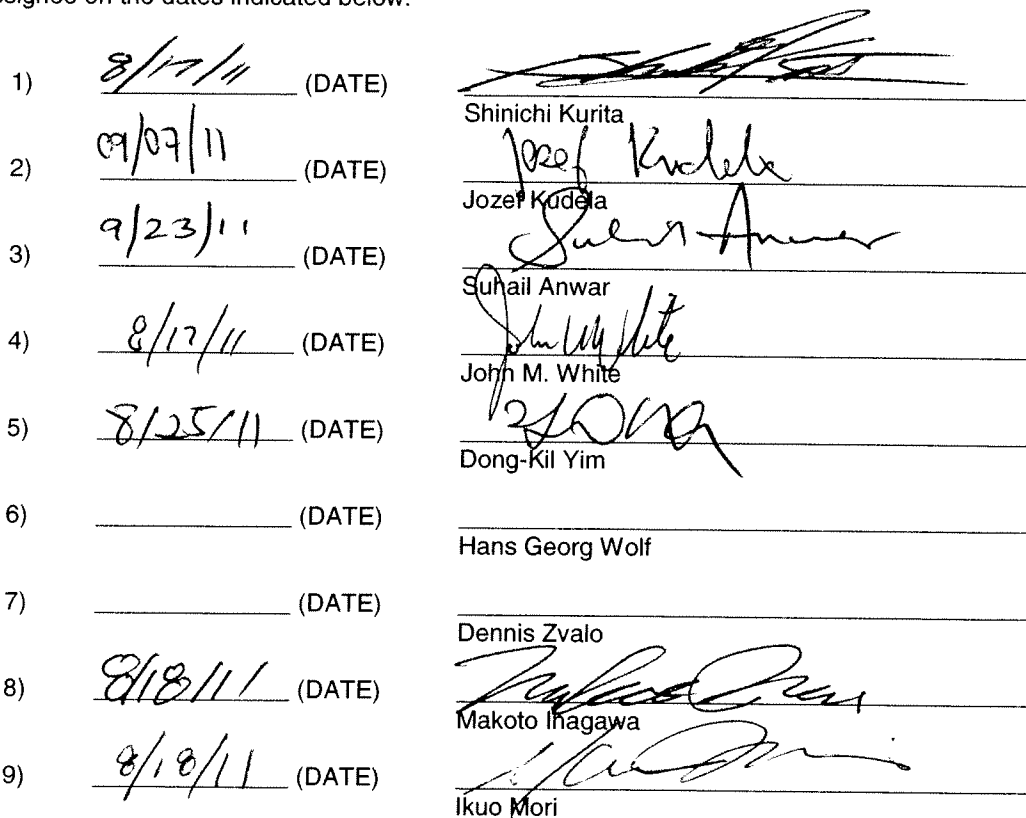 ssignee on the dates indicated below.
1) 8/17/11 (DATE)
Shinichi Kurita
2) 09/07/11 (DATE) Jozef Kudela
Jozef Kudela
3) 9/23/11 (DATE) Suhail Anwar
Suhail Anwar
4) 8/17/11 (DATE) John M White
John M. White
5) 8/25/11 (DATE)
Dong-Kil Yim
6) (DATE)
Hans Georg Wolf
7) (DATE)
Dennis Zvalo
8) 8/18/11 (DATE)
Makoto Inagawa
9) 8/18/11 (DATE)
Ikuo Mori